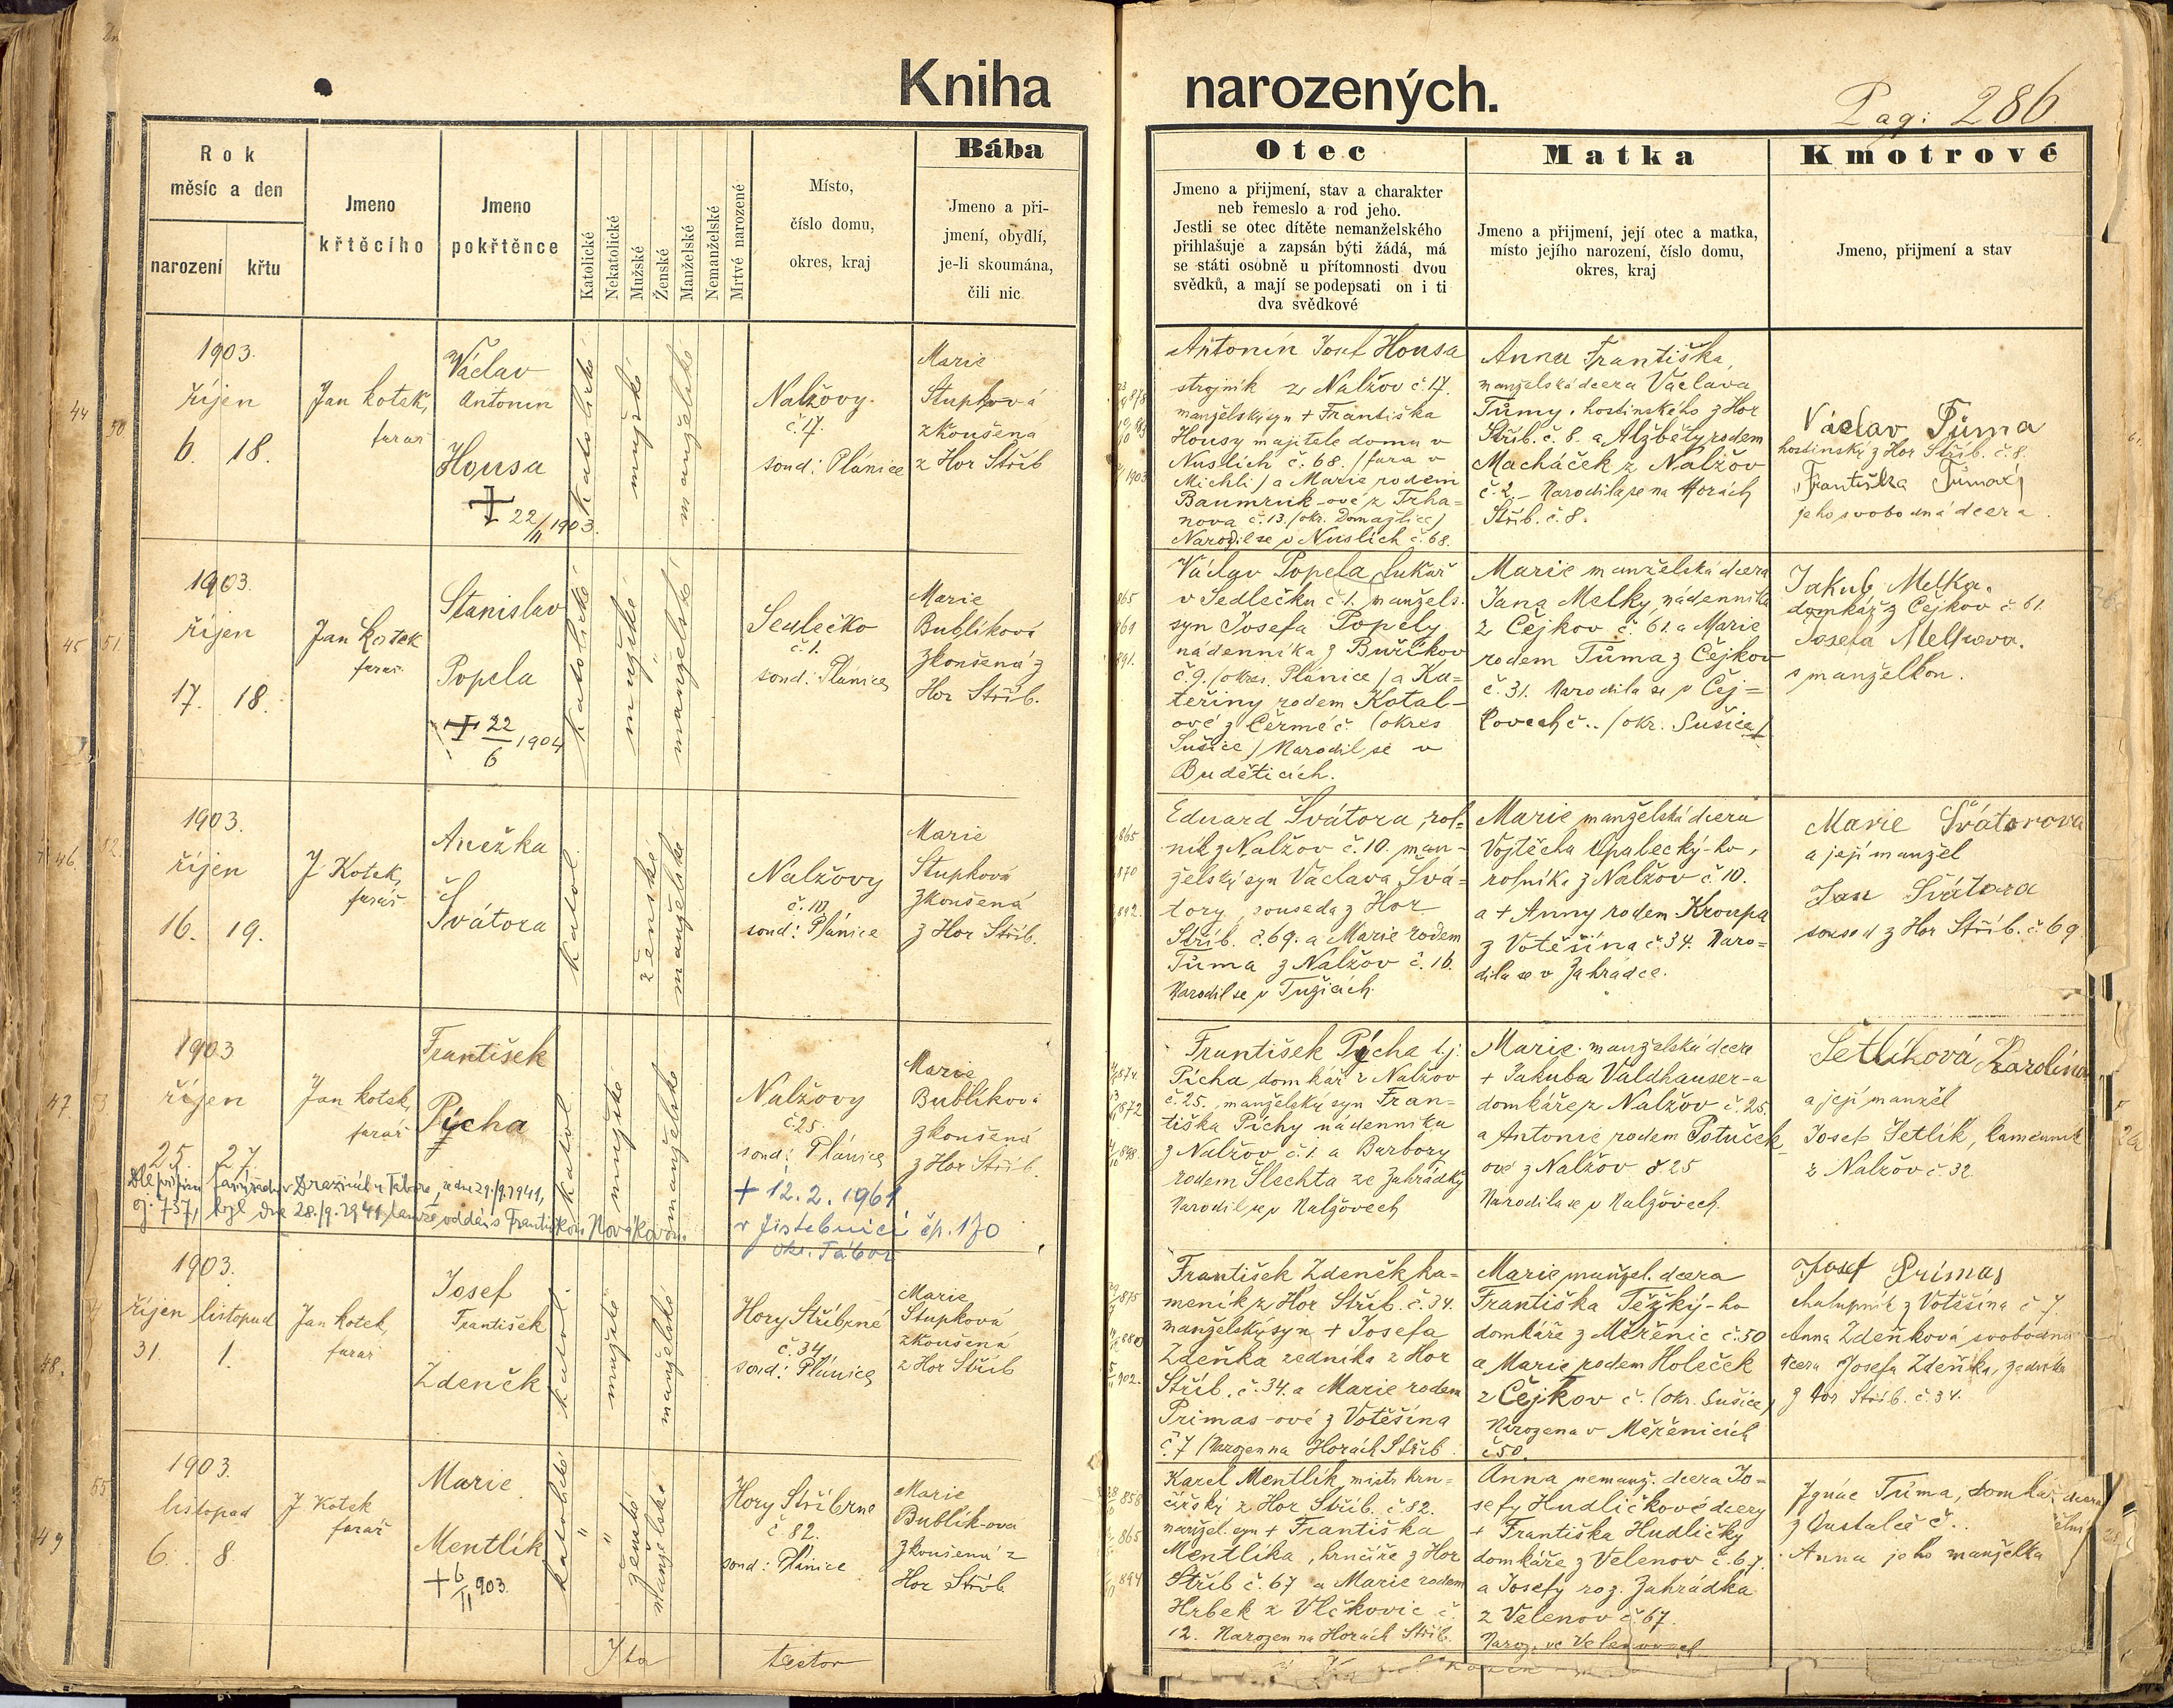 Kniha narozených.
Pag: 286
Rok
měsíc a den
narození křtu
Jmeno
křtěcího
Jmeno
pokřtěnce
Katolické
Nekatolické
Mužské
Ženské
Manželské
Nemanželské
Mrtvé narozené
Místo,
číslo domu,
okres, kraj
Bába
Jmeno a při-
jmení, obydlí,
je-li skoumána,
čili nic
Otec
Jmeno a přijmení, stav a charakter
neb řemeslo a rod jeho.
Jestli se otec dítěte nemanželského
přihlašuje a zapsán býti žádá, má
se státi osobně u přítomnosti dvou
svědků, a mají se podepsati on i ti
dva svědkové
Matka
Jmeno a přijmení, její otec a matka,
místo jejího narození, číslo domu,
okres, kraj
Kmotrové
Jmeno, přijmení a stav
44
50
1903.
říjen
6. 18.
Jan Kotek,
farář
Václav
Antonín
Housa
+ 22/11 1903.
katolické
mužské
manželské
Nalžovy.
č. 17.
soud: Plánice
Marie
Stupková
zkoušená
z Hor Stříb
Antonín Josef Housa
strojník z Nalžov č. 17.
manželský syn + Františka
Housy majitele domu v
Nuslích č. 68. /fara v
Michli/ a Marie rodem
Baumruk-ové z Trha=
nova č. 13. /okr. Domažlice/
Narodil se v Nuslích č. 68.
Anna Františka,
manželská dcera Václava
Tůmy, hostinského z Hor
Stříb. č. 8. a Alžběty rodem
Macháček z Nalžov
č. 2. Narodila se na Horách
Stříb. č. 8.
Václav Tůma
hostinský z Hor Stříb. č. 8.
Františka Tůmová
jeho svobodná dcera.
45
51.
1903.
říjen
17. 18.
Jan Kotek
farář
Stanislav
Popela
+ 22/6 1904
katolické
mužské
manželské
Sedlečko
č. 1.
soud: Plánice
Marie
Bublíková
zkoušená z
Hor Stříb.
Václav Popela, lukař
v Sedlečku č. 1. manžels.
syn Josefa Popely
nádenníka z Buřikov
č. 9. /okres. Plánice/ a Ka=
teřiny rodem Kotal-
ové z Čermé č. (okres
Sušice) Narodil se v
Budeticích.
Marie manželská dcera
Jana Melky, nádenníka
z Čejkov č. 61. a Marie
rodem Tůma z Čejkov
č. 31. Narodila se v Čej=
kovech č.. /okr. Sušice/
Jakub Melka.
domkář z Čejkov č. 61.
Josefa Melkova.
s manželkou.
46.
1903.
říjen
16. 19.
J. Kotek,
farář
Anežka
Švátora
katol.
ženské
manželské
Nalžovy
č. 10,
soud: Plánice
Marie
Stupková
zkoušená
z Hor Stříb.
Eduard Švátora, rol=
ník z Nalžov č. 10. man-
želský syn Václava Švá=
tory, souseda z Hor
Stříb. č. 69. a Marie rodem
Tůma z Nalžov č. 16.
Narodil se v Tužicích.
Marie manželská dcera
Vojtěcha Opalecký-ho,
rolníka z Nalžov č. 10.
a + Anny rodem Kroupa
z Votěšína č. 34. Naro=
dila se v Zahrádce.
Marie Švátorova
a její manžel
Jan Švátora
soused z Hor Stříb. č. 69
47.
53
1903
říjen
25. 27.
Jan Kotek,
farář
František
Pýcha
katol.
mužské
manželské
Nalžovy
č. 25
soud: Plánice
+ 12. 2. 1961
v Jistebnici čp. 170
okr. Tábor
Marie
Bublíková
zkoušená
z Hor Stříb.
č. 737, byl dne 28./9. 1941 tamže oddán s Františkou Novákovou.
František Pýcha t.j.
Pícha domkář z Nalžov
č. 25, manželský syn Fran=
tiška Píchy nádenníka
z Nalžov č. 1. a Barbory
rodem Šlechta ze Zahrádky
Narodil se v Nalžovech
Marie. manželská dcera
+ Jakuba Valdhauser-a
domkáře z Nalžov č. 25.
a Antonie rodem Potuček
ové z Nalžov č. 25
Narodila se v Nalžovech.
Šetlíková Karolína
a její manžel
Josef Šetlík, kameník
z Nalžov č. 32.
48.
1903.
říjen listopad
31. 1.
Jan Kotek,
farář
Josef
František
Zdeněk
katol.
mužské
manželské
Hory Stříbrné
č. 34
soud: Plánice
Marie
Stupková
zkoušená
z Hor Stříb
František Zdeněk ka=
meník z Hor Stříb. č. 34.
manželský syn + Josefa
Zdeňka zedníka z Hor
Stříb. č. 34. a Marie rodem
Primas-ové z Votěšína
č. 7 /Narozen na Horách Stříb.
Marie manžel. dcera
Františka Těžký-ho
domkáře z Měřenic č. 50
a Marie rodem Holeček
z Čejkov č. (okr. Sušice)
Narozena v Měřenicích
č 50.
Josef Primas
chalupník z Votěšína č. 7.
Anna Zdeňková svobodná
dcera Josefa Zdeňka, zedníka
z Hor Stříb. č. 34.
49
55
1903.
listopad
6. 8.
J. Kotek
farář
Marie.
Mentlík
+ 6/II 903.
katolické
ženské
manželské
Hory Stříbrne
č. 82.
soud: Plánice
Marie
Bublík-ova
zkoušená z
Hor Stříb
Karel Mentlík, mistr hrn=
čířský z Hor Stříb. č 82.
manžel. syn + Františka
Mentlíka, hrnčíře z Hor
Stříb č. 67 a Marie rodem
Hrbek z Vlčkovic č.
12. Narozen na Horách Stříb.
Anna nemanž. dcera Jo=
sefy Hudličkové dcery
+ Františka Hudličky
domkáře z Velenov č. 67.
a Josefy roz. Zahrádka
z Velenov č. 67.
Naroz. ve Velenovech
Ignác Tůma, domkář
z Oustalče č..
Anna jeho manželka
Ita testor